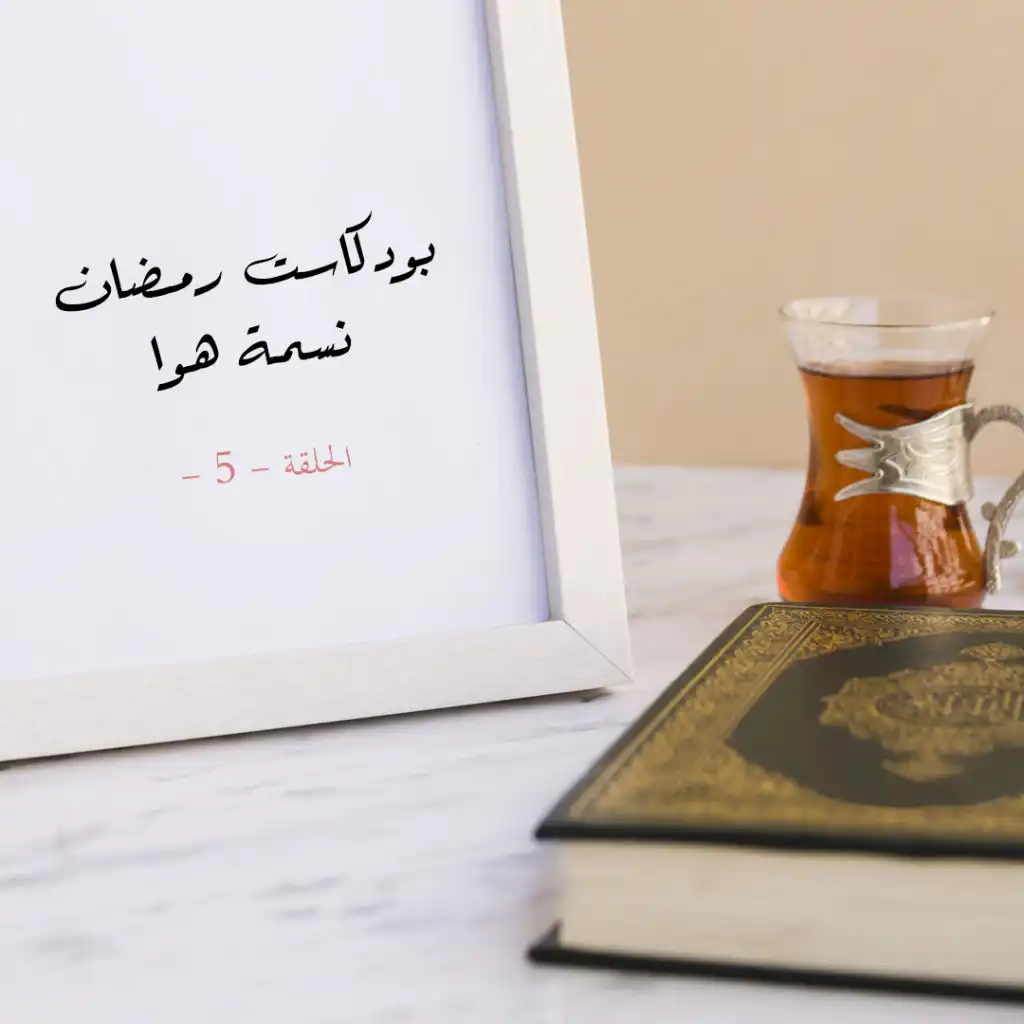 بودكاست رمضان
نسمة هوا
الحلقة - 5 -